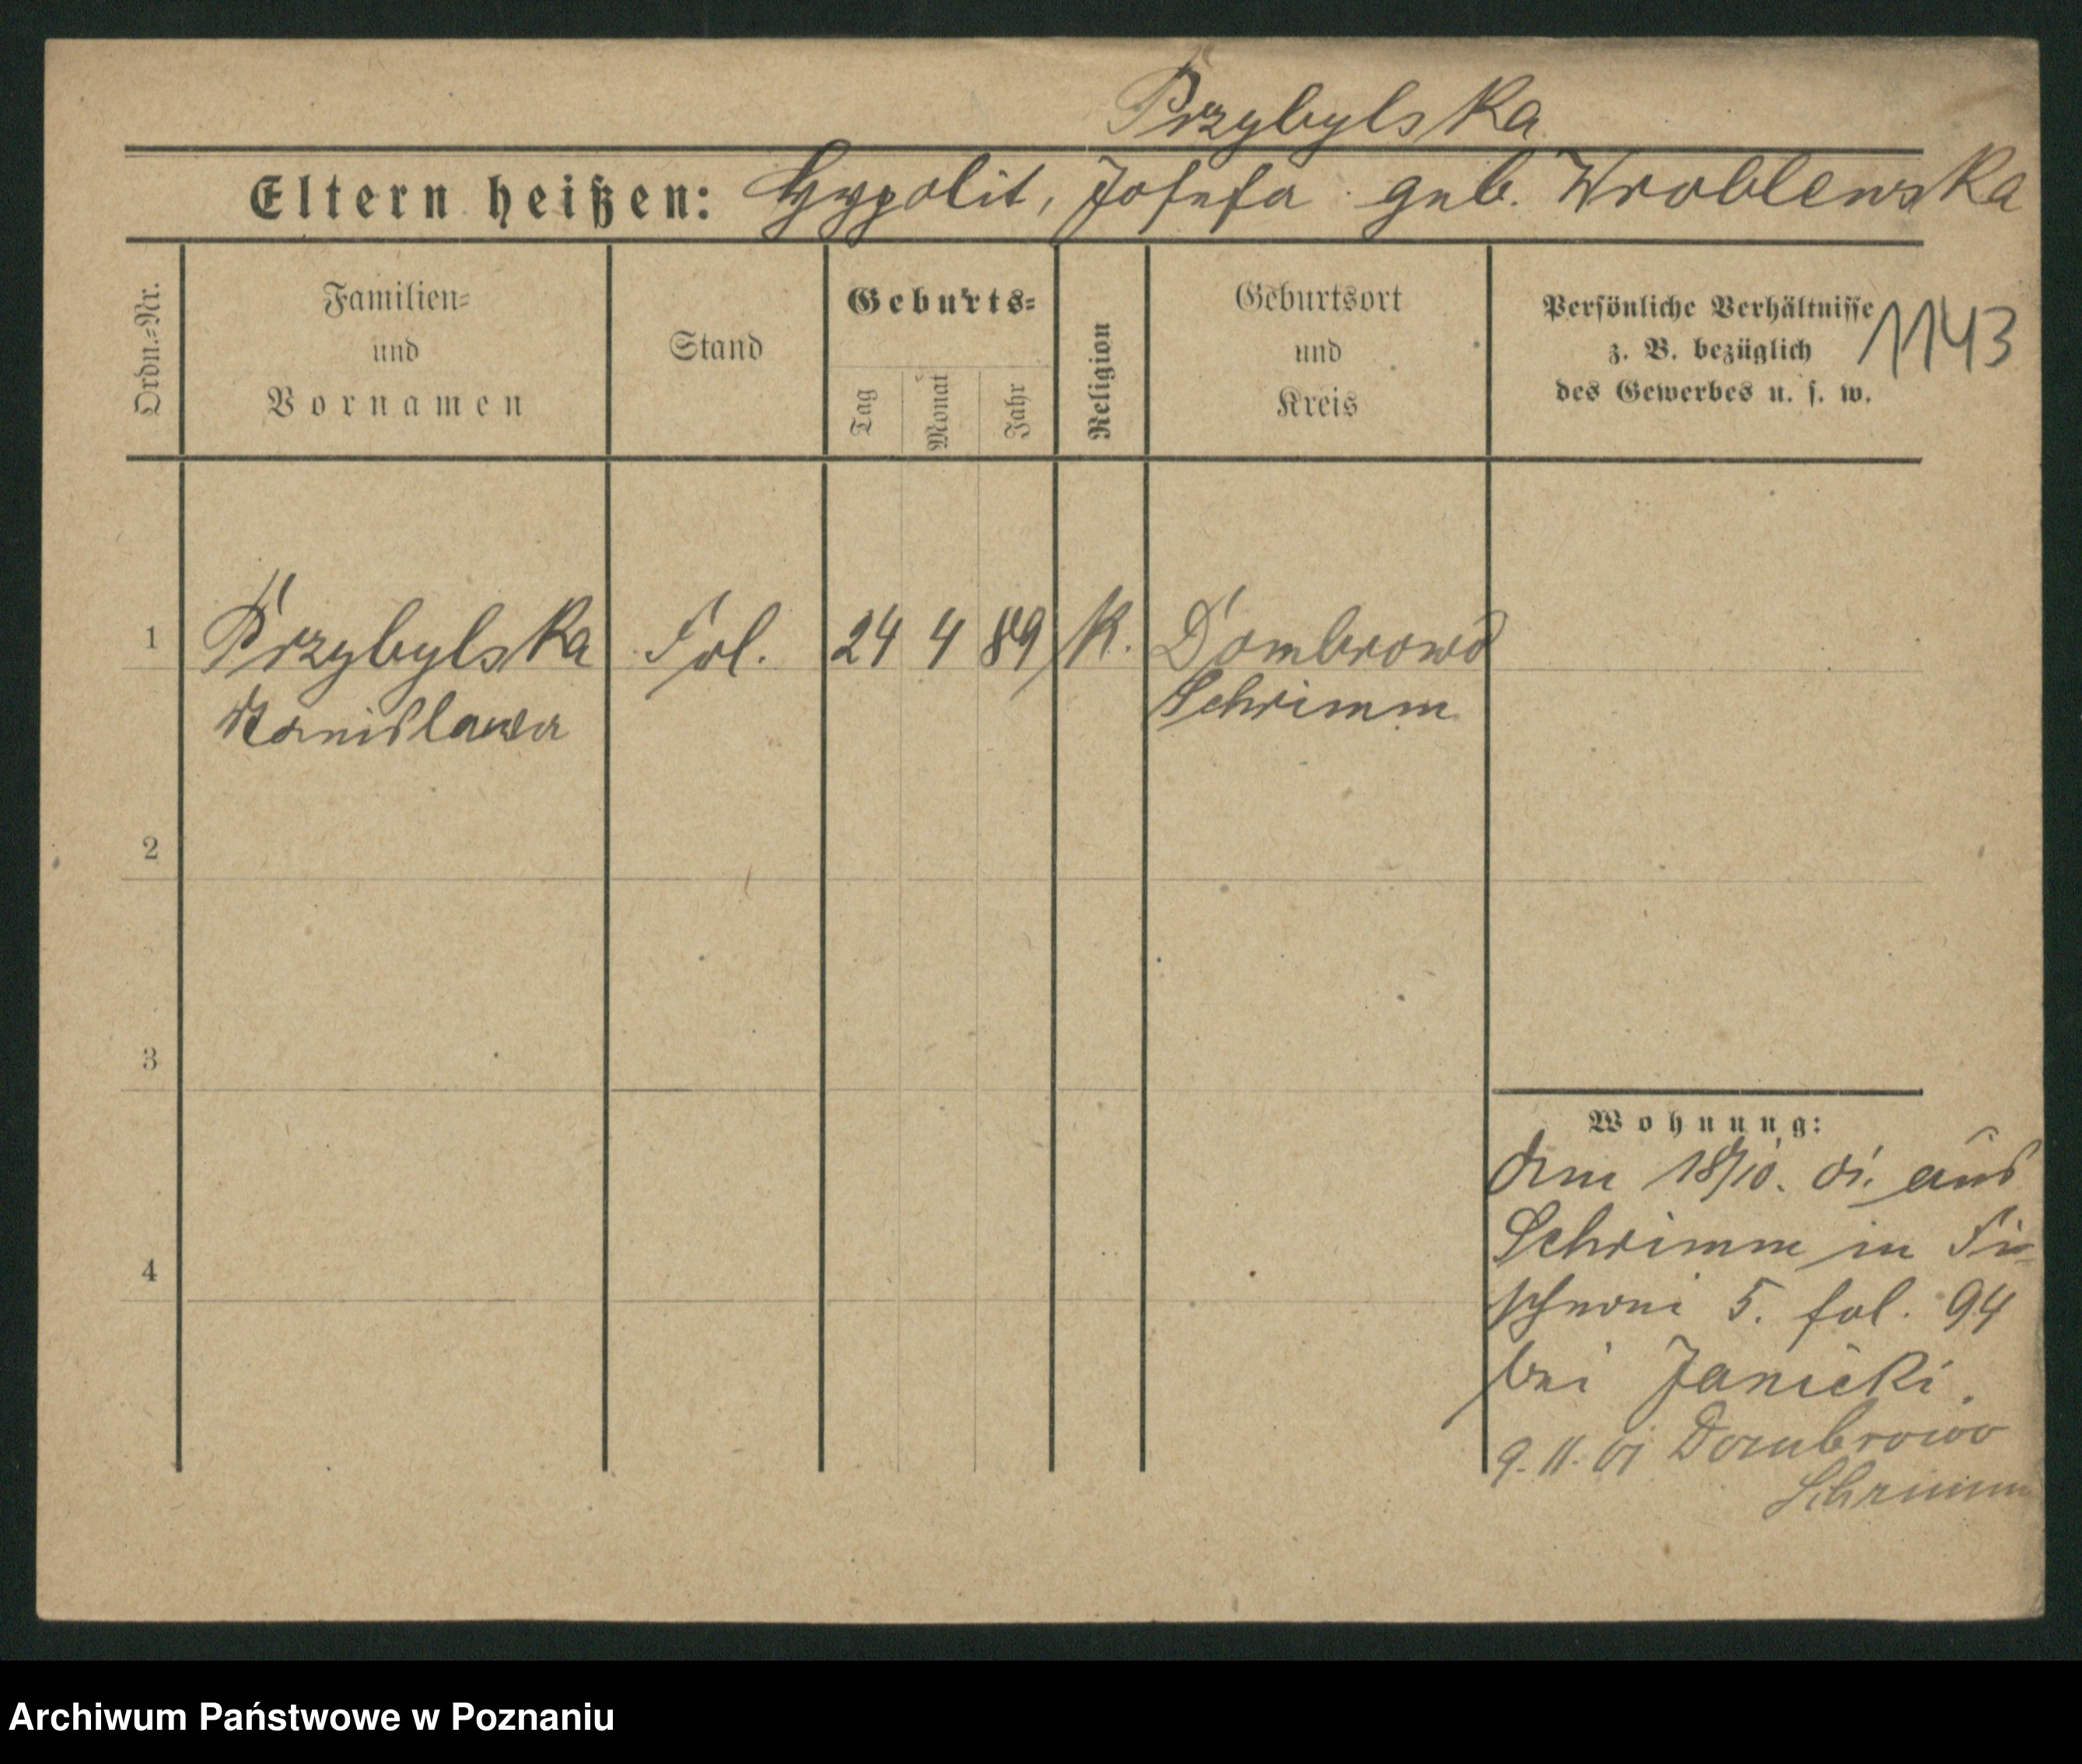 Przybylska
Eltern heißen: Hypolit, Josefa geb. Wroblewska
Ordn.-Nr.
Familien- und Vornamen
Stand
Geburts-
Tag
Monat
Jahr
Religion
Geburtsort und Kreis
Persönliche Verhältnisse
z. B. bezüglich
des Gewerbes u. s. w.
1143
1 Przybylska Frl. 24 4 89 K. Dombrowo
Stanislawa Schrimm
2
3
4
Wohnung:
den 18/10. 01. aus
Schrimm in Fi-
scherei 5. fol. 94
bei Janicki.
9.11.01 Dombrowo
Schrimm
Archiwum Państwowe w Poznaniu